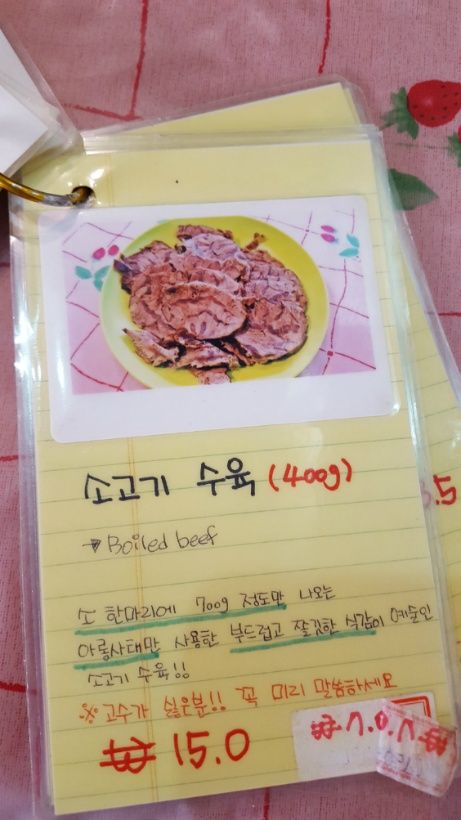 소고기 수육 (400g)
→ Boiled beef
소 한마리에 700g 정도만 나오는
아롱사태만 사용한 부드럽고 쫄깃한 식감이 예술인
소고기 수육!!
※ 고수가 싫은분!! 꼭 미리 말씀하세요
₩ 15.0
.5